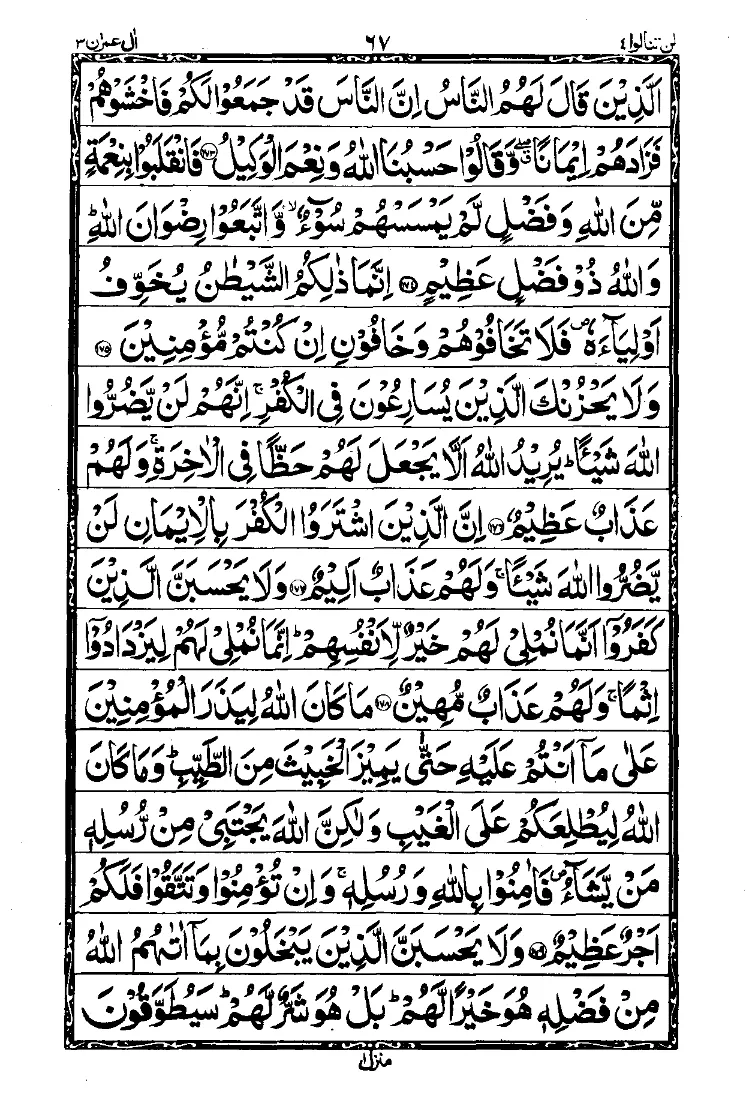 لن تنالوا ٤ ٦٧ اٰل عمرٰن ٣
اَلَّذِیْنَ قَالَ لَهُمُ النَّاسُ اِنَّ النَّاسَ قَدْ جَمَعُوْا لَكُمْ فَاخْشَوْهُمْ
فَزَادَهُمْ اِیْمَانًا ۖۗ وَّقَالُوْا حَسْبُنَا اللّٰهُ وَنِعْمَ الْوَكِیْلُ ﴿١٧٣﴾ فَانْقَلَبُوْا بِنِعْمَةٍ
مِّنَ اللّٰهِ وَفَضْلٍ لَّمْ یَمْسَسْهُمْ سُوْٓءٌ ۙ وَّاتَّبَعُوْا رِضْوَانَ اللّٰهِ ؕ
وَاللّٰهُ ذُوْ فَضْلٍ عَظِیْمٍ ﴿١٧٤﴾ اِنَّمَا ذٰلِكُمُ الشَّیْطٰنُ یُخَوِّفُ
اَوْلِیَآءَهٗ ۪ فَلَا تَخَافُوْهُمْ وَخَافُوْنِ اِنْ كُنْتُمْ مُّؤْمِنِیْنَ ﴿١٧٥﴾
وَلَا یَحْزُنْكَ الَّذِیْنَ یُسَارِعُوْنَ فِی الْكُفْرِ ۚ اِنَّهُمْ لَنْ یَّضُرُّوا
اللّٰهَ شَیْـًٔا ؕ یُرِیْدُ اللّٰهُ اَلَّا یَجْعَلَ لَهُمْ حَظًّا فِی الْاٰخِرَةِ ۚ وَلَهُمْ
عَذَابٌ عَظِیْمٌ ﴿١٧٦﴾ اِنَّ الَّذِیْنَ اشْتَرَوُا الْكُفْرَ بِالْاِیْمَانِ لَنْ
یَّضُرُّوا اللّٰهَ شَیْـًٔا ۚ وَلَهُمْ عَذَابٌ اَلِیْمٌ ﴿١٧٧﴾ وَلَا یَحْسَبَنَّ الَّذِیْنَ
كَفَرُوْۤا اَنَّمَا نُمْلِیْ لَهُمْ خَیْرٌ لِّاَنْفُسِهِمْ ؕ اِنَّمَا نُمْلِیْ لَهُمْ لِیَزْدَادُوْۤا
اِثْمًا ۚ وَلَهُمْ عَذَابٌ مُّهِیْنٌ ﴿١٧٨﴾ مَا كَانَ اللّٰهُ لِیَذَرَ الْمُؤْمِنِیْنَ
عَلٰی مَاۤ اَنْتُمْ عَلَیْهِ حَتّٰی یَمِیْزَ الْخَبِیْثَ مِنَ الطَّیِّبِ ؕ وَمَا كَانَ
اللّٰهُ لِیُطْلِعَكُمْ عَلَی الْغَیْبِ وَلٰكِنَّ اللّٰهَ یَجْتَبِیْ مِنْ رُّسُلِهٖ
مَنْ یَّشَآءُ ۪ فَاٰمِنُوْا بِاللّٰهِ وَرُسُلِهٖ ۚ وَاِنْ تُؤْمِنُوْا وَتَتَّقُوْا فَلَكُمْ
اَجْرٌ عَظِیْمٌ ﴿١٧٩﴾ وَلَا یَحْسَبَنَّ الَّذِیْنَ یَبْخَلُوْنَ بِمَاۤ اٰتٰىهُمُ اللّٰهُ
مِنْ فَضْلِهٖ هُوَ خَیْرًا لَّهُمْ ؕ بَلْ هُوَ شَرٌّ لَّهُمْ ؕ سَیُطَوَّقُوْنَ
منزل ١